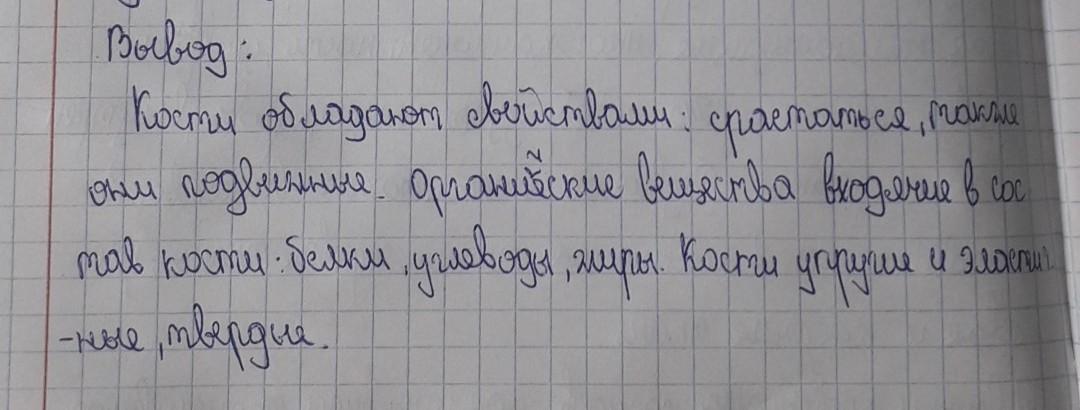 Вывод:
Кости обладают свойствами: срастаться, также
они подвижные. Органические вещества входящие в сос
тав кости: белки, углеводы, жиры. Кости упругие и эластич
-ные, твердые.